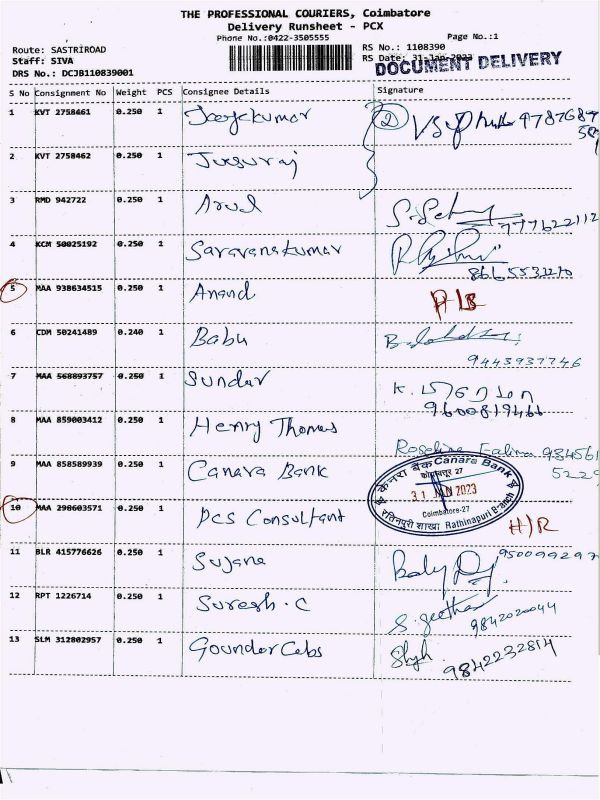 THE PROFESSIONAL COURIERS, Coimbatore
Delivery Runsheet - PCX
Phone No.:0422-3505555
Page No.:1
Route: SASTRIROAD
Staff: SIVA
DRS No.: DCJB110839001
RS No.: 1108390
RS Date: 31-Jan-2023
DOCUMENT DELIVERY
S No Consignment No Weight PCS Consignee Details Signature
1 KVT 2758461 0.250 1 2
2 KVT 2758462 0.250 1 Jesuraj
3 RMD 942722 0.250 1 Arul 7771622112
4 KCM 50025192 0.250 1 Saravanakumar
5 MAA 938634515 0.250 1 Anand
6 CDM 50241489 0.240 1 Babu 9443937746
7 MAA 568893757 0.250 1 Sundar K.
8 MAA 859003412 0.250 1 Henry Thomas
9 MAA 858589939 0.250 1 Canara Bank
केनरा बैंक Canara Bank
कोयम्बत्तूर 27
31 JAN 2023
Coimbatore-27
रतिनपुरी शाखा Rathinapuri Branch
10 MAA 298603571 0.250 1 DCS Consultant H/R
11 BLR 415776626 0.250 1 Sujana
12 RPT 1226714 0.250 1 Suresh.C S. geetha 9842020044
13 SLM 312802957 0.250 1 Gounder Cabs 9842232814